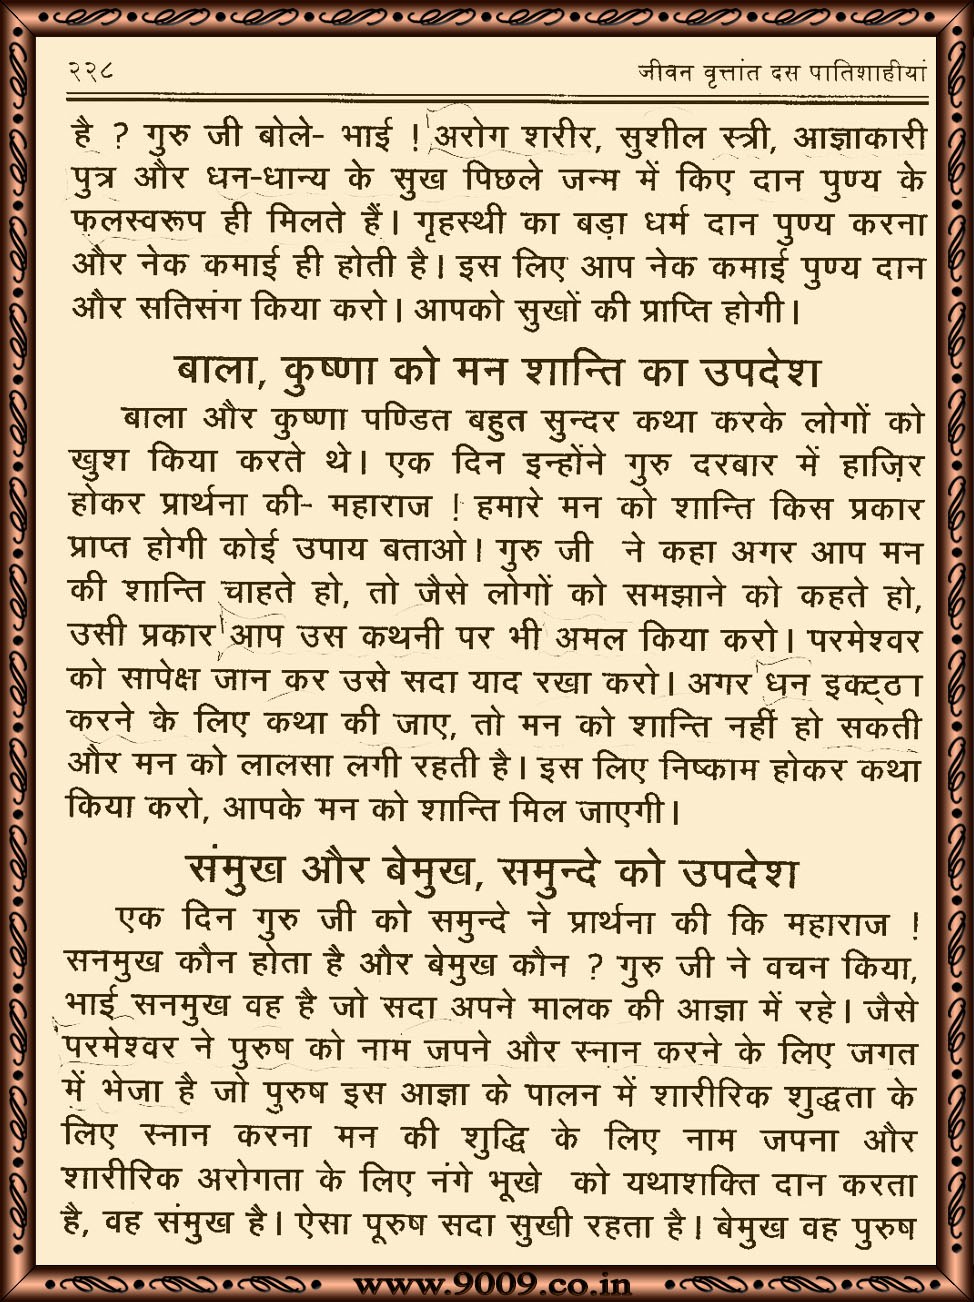 २२८ जीवन वृत्तांत दस पातिशाहीयां
है ? गुरु जी बोले- भाई ! अरोग शरीर, सुशील स्त्री, आज्ञाकारी
पुत्र और धन-धान्य के सुख पिछले जन्म में किए दान पुण्य के
फलस्वरूप ही मिलते हैं। गृहस्थी का बड़ा धर्म दान पुण्य करना
और नेक कमाई ही होती है। इस लिए आप नेक कमाई पुण्य दान
और सतिसंग किया करो। आपको सुखों की प्राप्ति होगी।
बाला, कुष्णा को मन शान्ति का उपदेश
बाला और कुष्णा पण्डित बहुत सुन्दर कथा करके लोगों को
खुश किया करते थे। एक दिन इन्होंने गुरु दरबार में हाज़िर
होकर प्रार्थना की- महाराज ! हमारे मन को शान्ति किस प्रकार
प्राप्त होगी कोई उपाय बताओ। गुरु जी ने कहा अगर आप मन
की शान्ति चाहते हो, तो जैसे लोगों को समझाने को कहते हो,
उसी प्रकार आप उस कथनी पर भी अमल किया करो। परमेश्वर
को सापेक्ष जान कर उसे सदा याद रखा करो। अगर धन इक्ट्ठा
करने के लिए कथा की जाए, तो मन को शान्ति नहीं हो सकती
और मन को लालसा लगी रहती है। इस लिए निष्काम होकर कथा
किया करो, आपके मन को शान्ति मिल जाएगी।
संमुख और बेमुख, समुन्दे को उपदेश
एक दिन गुरु जी को समुन्दे ने प्रार्थना की कि महाराज !
सनमुख कौन होता है और बेमुख कौन ? गुरु जी ने वचन किया,
भाई सनमुख वह है जो सदा अपने मालक की आज्ञा में रहे। जैसे
परमेश्वर ने पुरुष को नाम जपने और स्नान करने के लिए जगत
में भेजा है जो पुरुष इस आज्ञा के पालन में शारीरिक शुद्धता के
लिए स्नान करना मन की शुद्धि के लिए नाम जपना और
शारीरिक अरोगता के लिए नंगे भूखे को यथाशक्ति दान करता
है, वह संमुख है। ऐसा पूरुष सदा सुखी रहता है। बेमुख वह पुरुष
www.9009.co.in